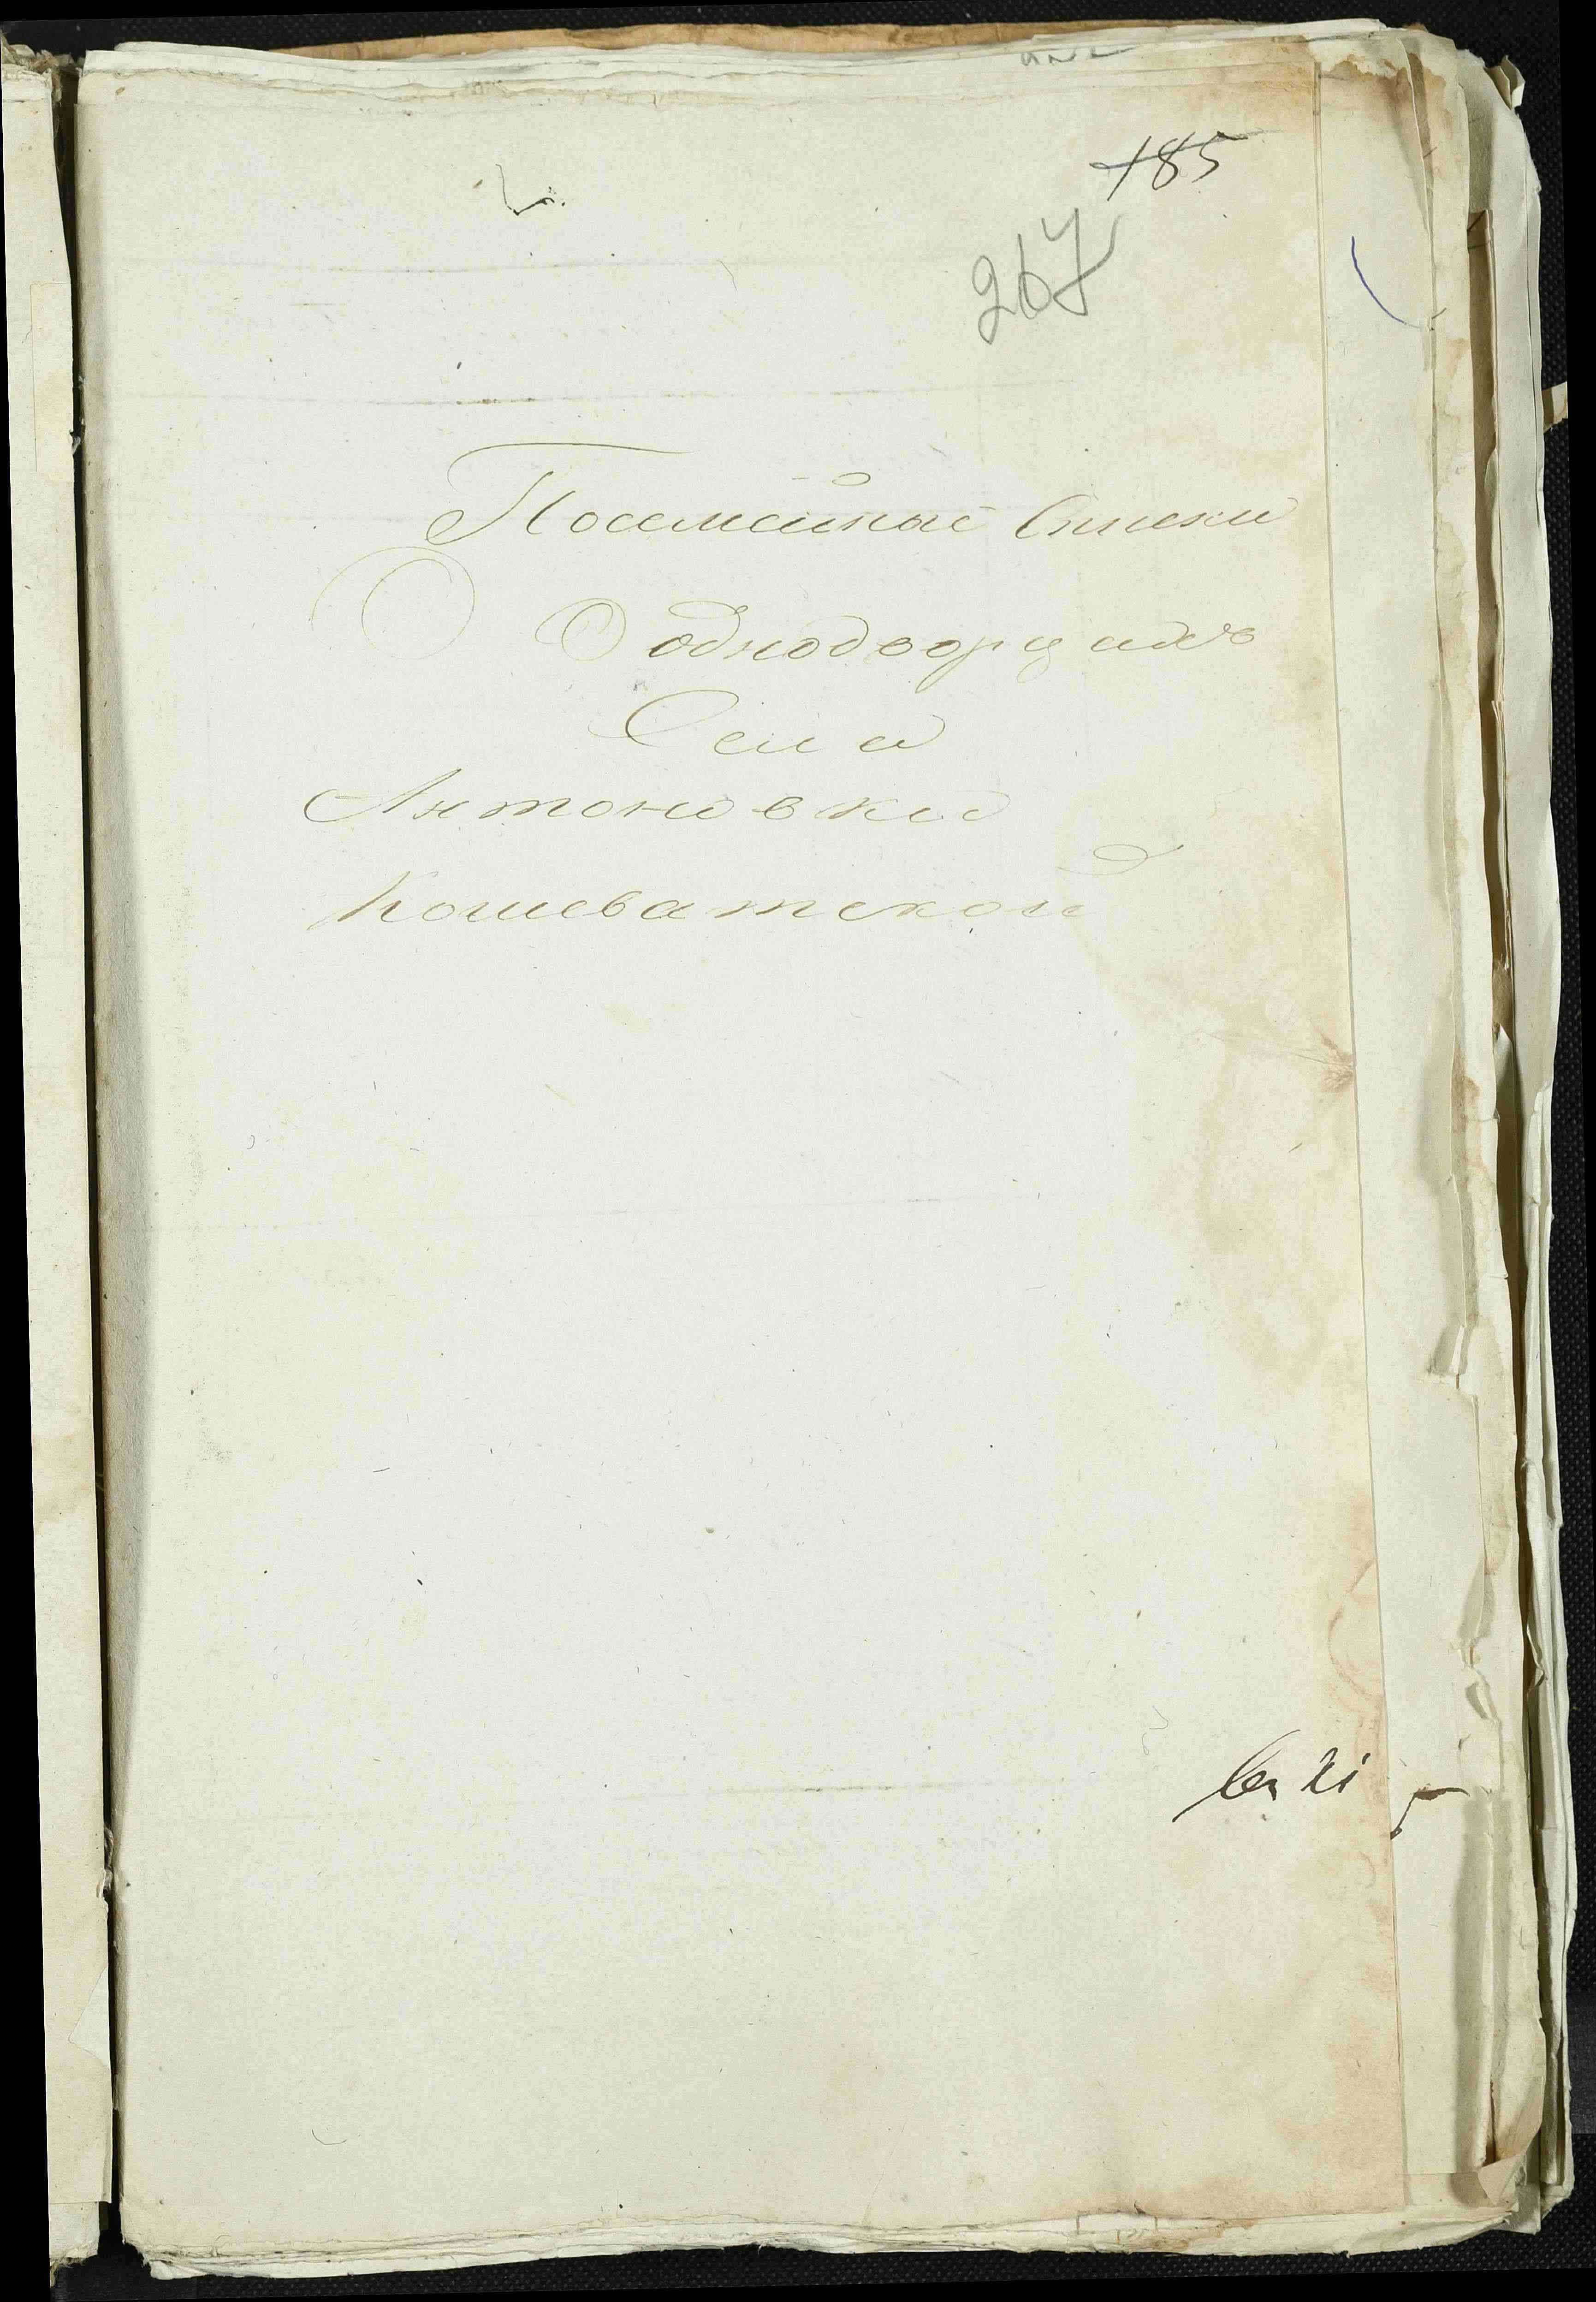 185
267
Посемейные Списки
О однодворцахъ
Села
Антоновки
Кошеватской